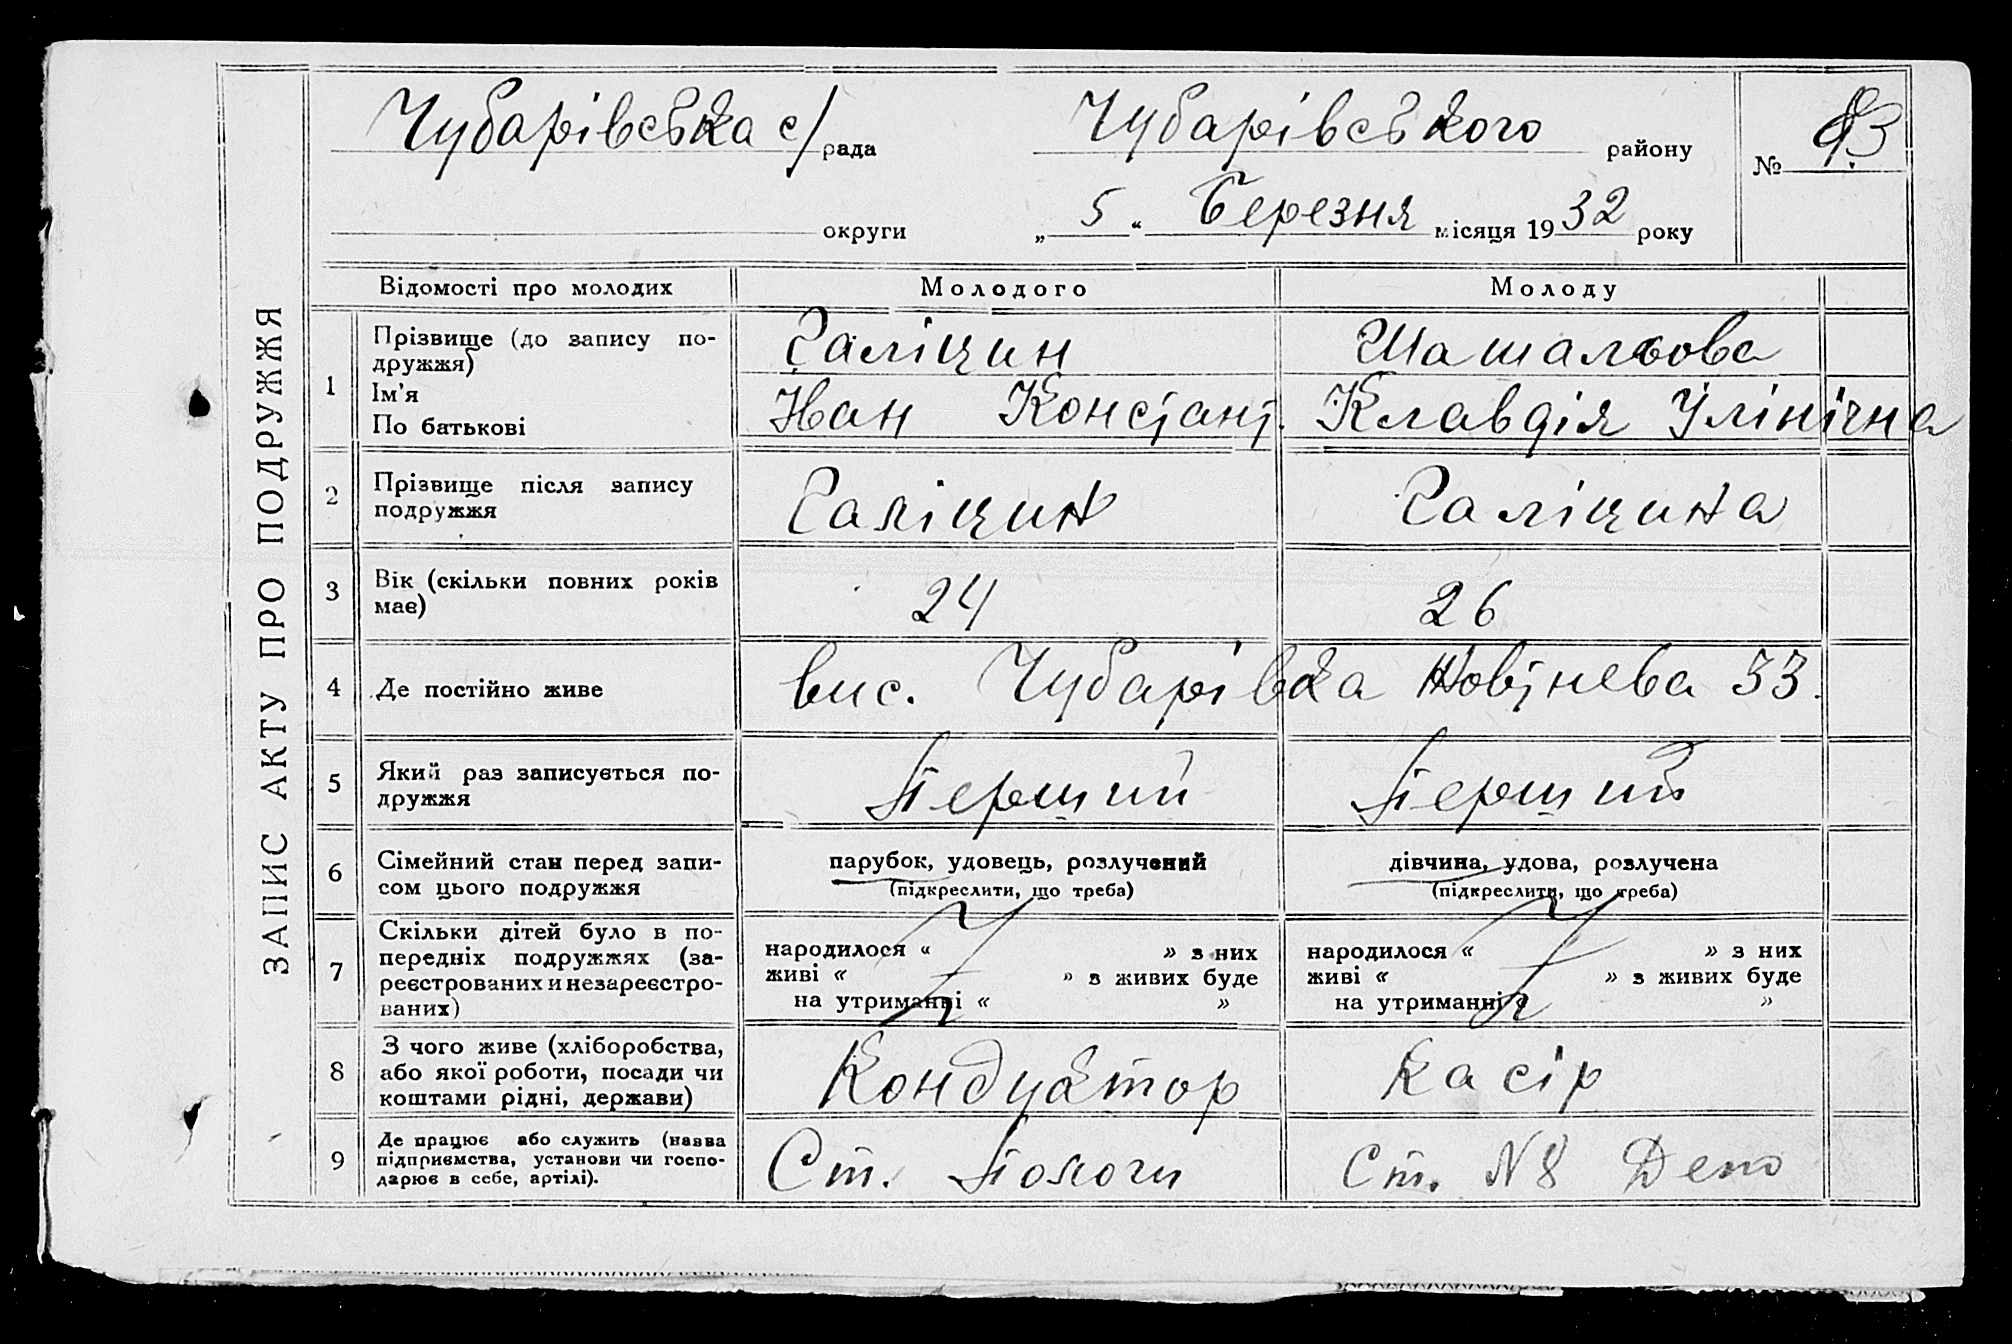 ЗАПИС АКТУ ПРО ПОДРУЖЖЯ
Чубарівська с/рада Чубарівського району № 
округи „5“ Березня місяця 1932 року
Відомості про молодих Молодого Молоду
1 Прізвище (до запису по-
дружжя) Галіцин Шашальова
Ім'я
По батькові Иван Констант. Клавдія Ілінічна
2 Прізвище після запису
подружжя Галіцин Галіцина
3 Вік (скільки повних років
має) 24 26
4 Де постійно живе вис. Чубарівка 33.
5 Який раз записується по-
дружжя Перший Перший
6 Сімейний стан перед запи-
сом цього подружжя парубок, удовець, розлучений дівчина, удова, розлучена
(підкреслити, що треба) (підкреслити, що треба)
7 Скільки дітей було в по-
передніх подружжях (за-
реєстрованих и незареєстро-
ваних) народилося « » з них народилося « » з них
живі « » з живих буде живі « » з живих буде
на утриманні « » на утриманні « »
8 З чого живе (хліборобства,
або якої роботи, посади чи
коштами рідні, держави) Кондуктор Касір
9 Де працює або служить (назва
підприємства, установи чи госпо-
дарює в себе, артілі). Ст. Пологи Ст. N8 Депо